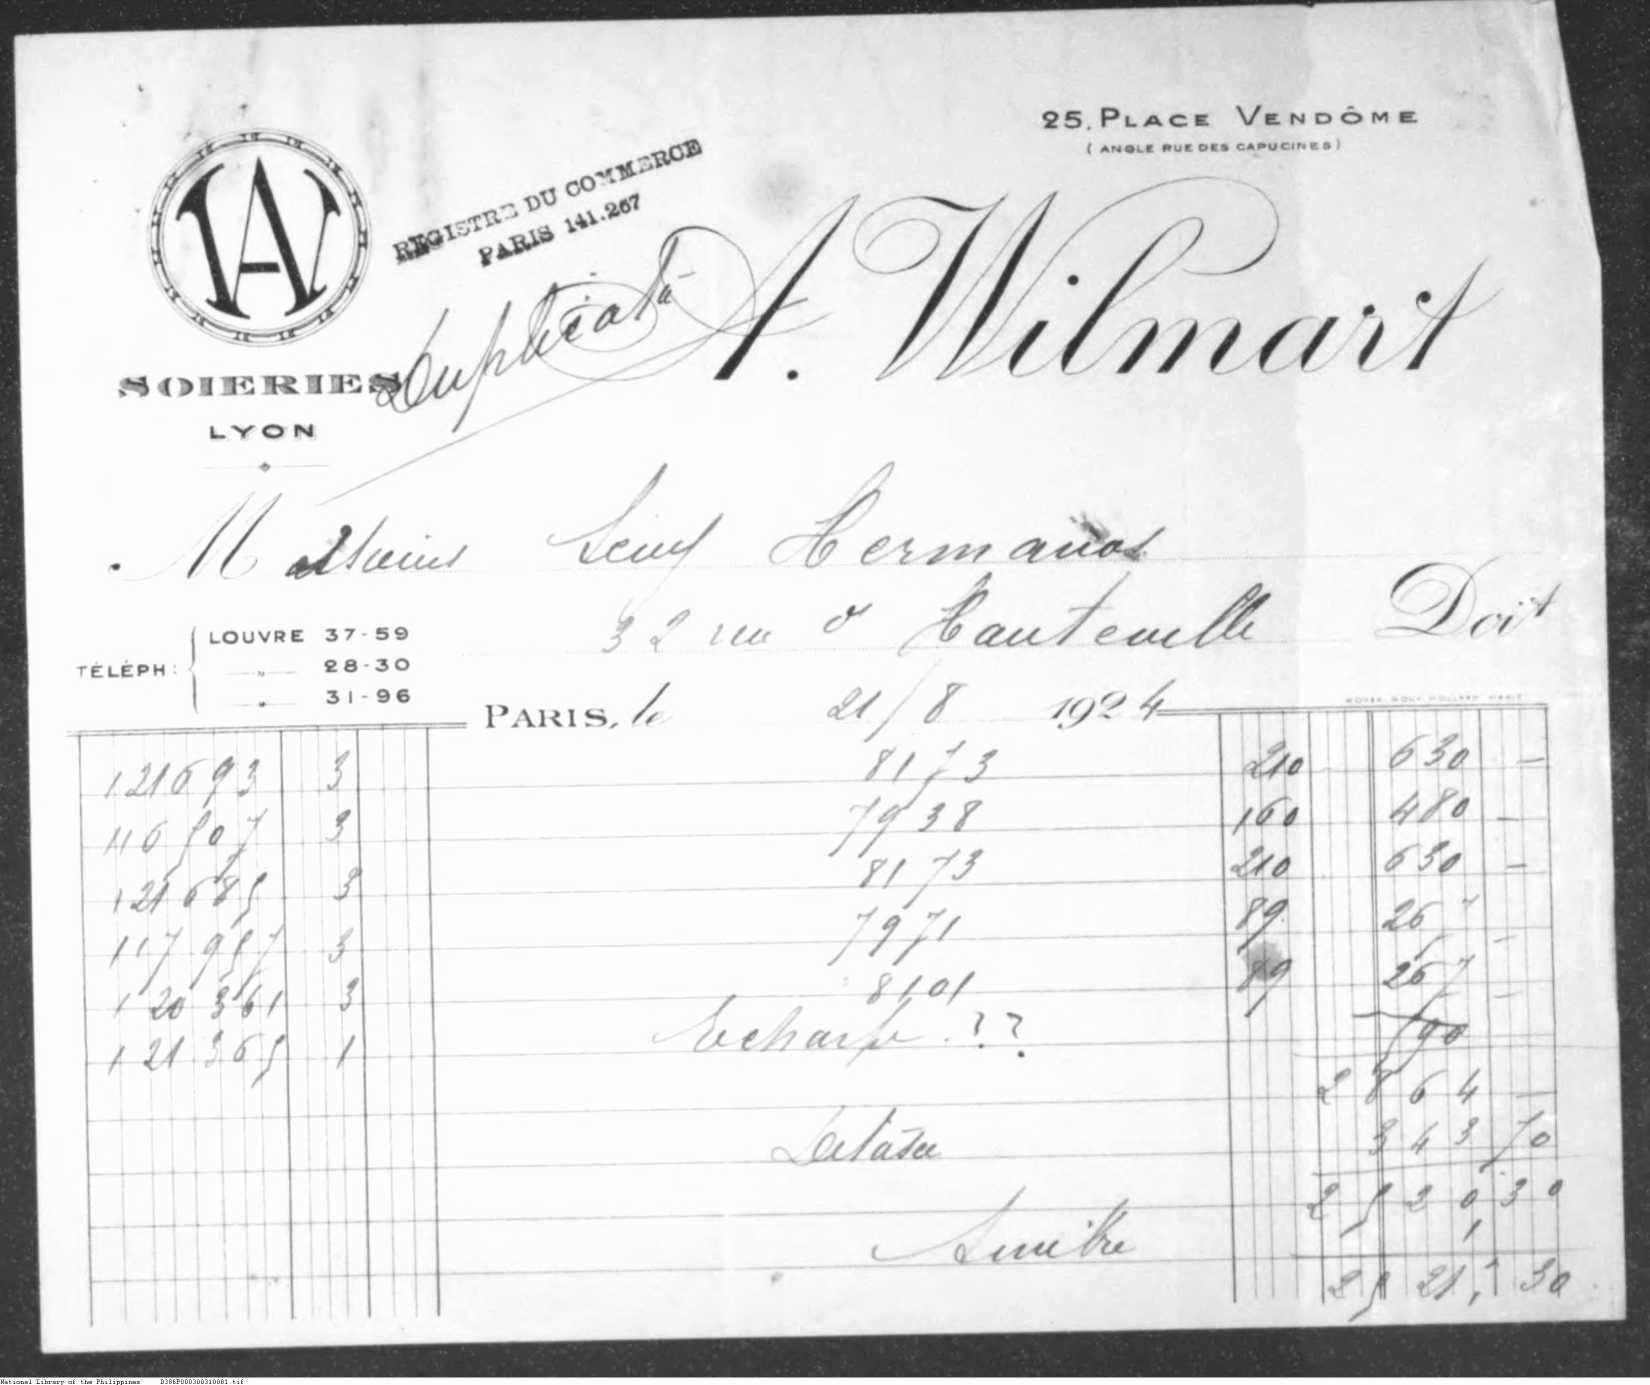 25, PLACE VENDÔME
(ANGLE RUE DES CAPUCINES)
REGISTRE DU COMMERCE
PARIS 141.267
Duplicata
A. Wilmart
WA
SOIERIES
LYON
Messieurs Levy Hermanos
32 rue d'Hauteville Doit
TÉLÉPH: LOUVRE 37-59
" 28-30
" 31-96
PARIS, le 21/8 1924
121693 3 8173 210 630 –
116507 3 7938 160 480 –
121685 3 8173 210 630 –
117957 3 7971 89 267 –
120361 3 8101 89 267 –
121365 1 Echarpe ?? 590
2864 –
343 70
2520 30
Timbre 1
2521, 30
National Library of the Philippines D386P000300310001.tif